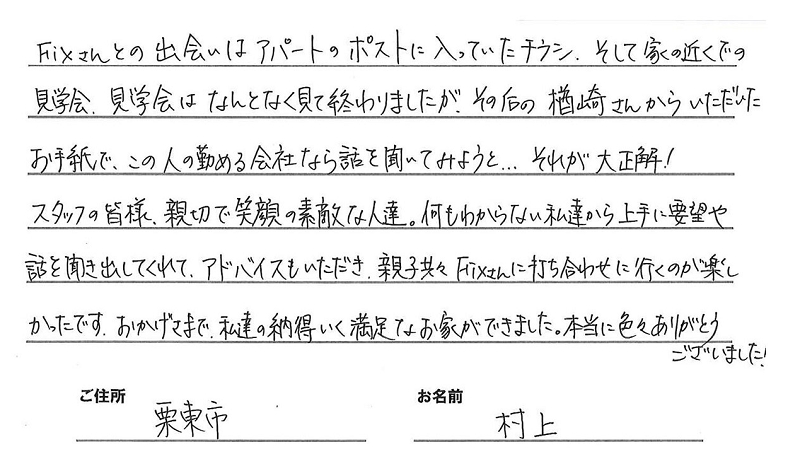 Fixさんとの出会いはアパートのポストに入っていたチラシ．そして家の近くでの
見学会．見学会はなんとなく見て終わりましたが、その后の楢崎さんからいただいた
お手紙で、この人の勤める会社なら話を聞いてみようと…それが大正解！
スタッフの皆様、親切で笑顔の素敵な人達。何もわからない私達から上手に要望や
話を聞き出してくれて、アドバイスもいただき、親子共々Fixさんに打ち合わせに行くのが楽し
かったです．おかげさまで、私達の納得いく満足なお家ができました。本当に色々ありがとう
ございました！
ご住所
栗東市
お名前
村上